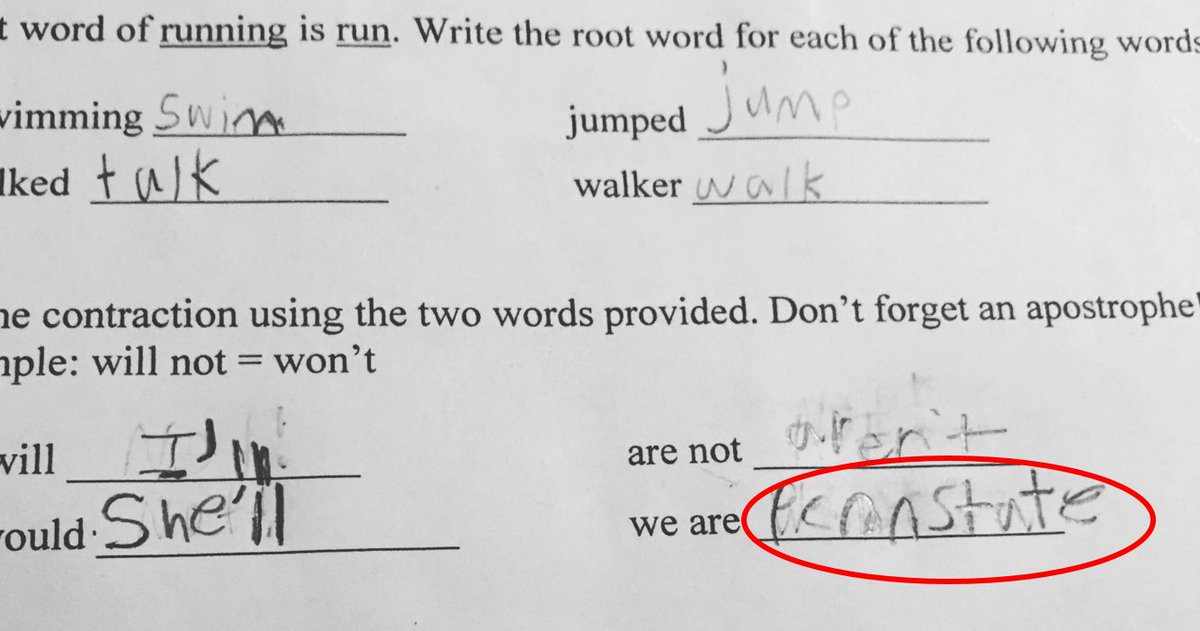 t word of running is run. Write the root word for each of the following words
vimming Swim jumped Jump
lked talk walker walk
ne contraction using the two words provided. Don't forget an apostrophe!
nple: will not = won't
will are not aren't
ould She'll we are Pennstate